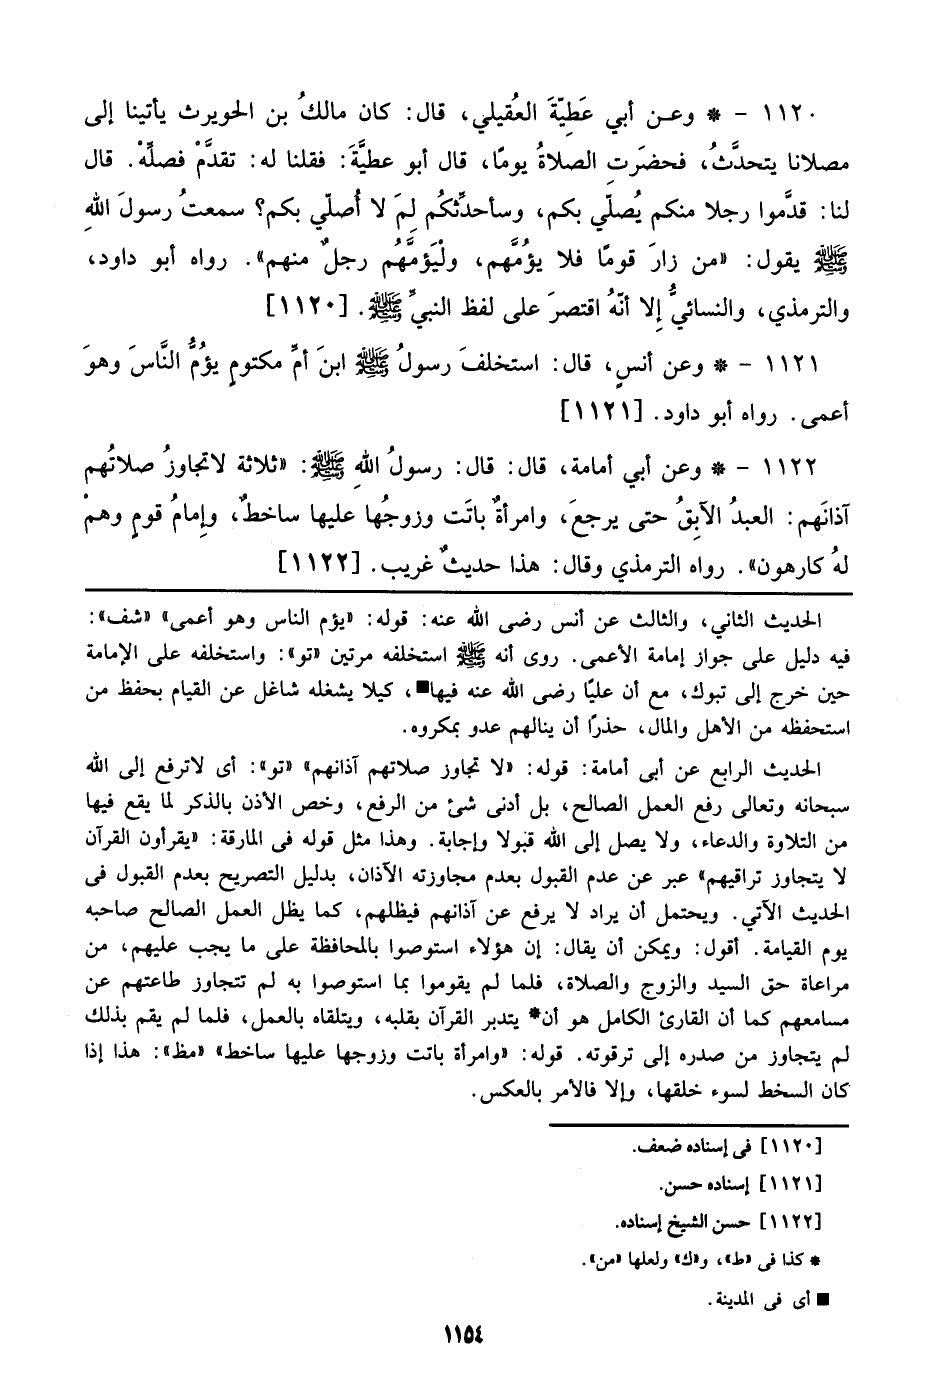 ١١٢٠ - * وعـن أبي عَطِيّةَ العُقيلي، قال: كان مالكُ بن الحويرث يأتينا إلى
مصلانا يتحدَّثُ، فحضرَتِ الصلاةُ يومًا، قال أبو عطيَّةَ: فقلنا له: تقدَّمْ فصلِّهْ. قال
لنا: قدَّموا رجلا منكم يُصلّي بكم، وسأحدِّثكُم لِمَ لا أُصلّي بكم؟ سمعتُ رسولَ اللهِ
ﷺ يقول: «من زارَ قومًا فلا يؤمَّهم، ولْيَؤمَّهُم رجلٌ منهم». رواه أبو داود،
والترمذي، والنسائيُّ إلا أنّهُ اقتصرَ على لفظ النبيِّ ﷺ. [١١٢٠]
١١٢١ - * وعن أنسٍ، قال: استخلفَ رسولُ ﷺ ابنَ أمِّ مكتومٍ يؤُمُّ النَّاسَ وهوَ
أعمى. رواه أبو داود. [١١٢١]
١١٢٢ - * وعن أبي أمامة، قال: قال: رسولُ اللهِ ﷺ: «ثلاثة لاتجاوزُ صلاتُهم
آذانَهم: العبدُ الآبِقُ حتى يرجعَ، وامرأةٌ باتَت وزوجُها عليها ساخطٌ، وإمامُ قومٍ وهمْ
لهُ كارهون». رواه الترمذي وقال: هذا حديثٌ غريب. [١١٢٢]
الحديث الثاني، والثالث عن أنس رضى الله عنه: قوله: «يؤم الناس وهو أعمى» «شف»:
فيه دليل على جواز إمامة الأعمى. روى أنه ﷺ استخلفه مرتين «تو»: واستخلفه على الإمامة
حين خرج إلى تبوك، مع أن عليًا رضى الله عنه فيها■، كيلا يشغله شاغل عن القيام بحفظ من
استحفظه من الأهل والمال، حذرًا أن ينالهم عدو بمكروه.
الحديث الرابع عن أبى أمامة: قوله: «لا تجاوز صلاتهم آذانهم» «تو»: أى لاترفع إلى الله
سبحانه وتعالى رفع العمل الصالح، بل أدنى شئ من الرفع، وخص الأذن بالذكر لما يقع فيها
من التلاوة والدعاء، ولا يصل إلى الله قبولا وإجابة. وهذا مثل قوله فى المارقة: «يقرأون القرآن
لا يتجاوز تراقيهم» عبر عن عدم القبول بعدم مجاوزته الآذان، بدليل التصريح بعدم القبول فى
الحديث الآتي. ويحتمل أن يراد لا يرفع عن آذانهم فيظلهم، كما يظل العمل الصالح صاحبه
يوم القيامة. أقول: ويمكن أن يقال: إن هؤلاء استوصوا بالمحافظة على ما يجب عليهم، من
مراعاة حق السيد والزوج والصلاة، فلما لم يقوموا بما استوصوا به لم تتجاوز طاعتهم عن
مسامعهم كما أن القارئ الكامل هو أن* يتدبر القرآن بقلبه، ويتلقاه بالعمل، فلما لم يقم بذلك
لم يتجاوز من صدره إلى ترقوته. قوله: «وامرأة باتت وزوجها عليها ساخط» «مظ»: هذا إذا
كان السخط لسوء خلقها، وإلا فالأمر بالعكس.
[١١٢٠] فى إسناده ضعف.
[١١٢١] إسناده حسن.
[١١٢٢] حسن الشيخ إسناده.
* كذا فى «ط»، و«ك» ولعلها «من».
■ أى فى المدينة.
١١٥٤